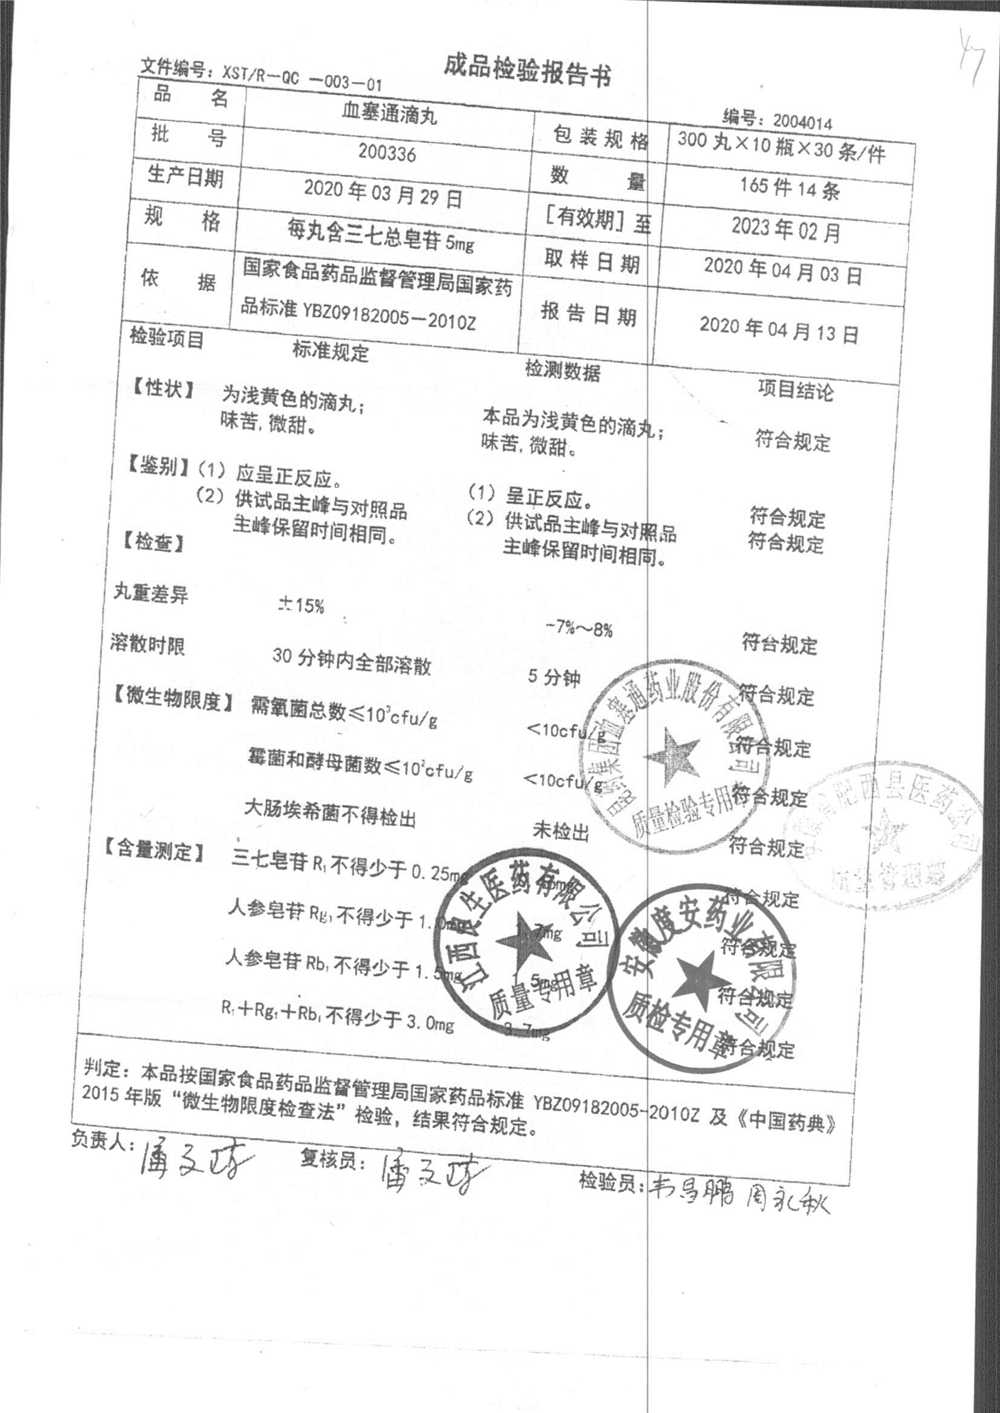 成品检验报告书
文件编号：XST/R-QC -003-01
编号：2004014
品 名 血塞通滴丸 包装规格 300丸×10瓶×30条/件
批 号 200336 数 量 165件14条
生产日期 2020年03月29日 [有效期]至 2023年02月
规 格 每丸含三七总皂苷5mg 取样日期 2020年04月03日
依 据 国家食品药品监督管理局国家药
品标准YBZ09182005-2010Z 报告日期 2020年04月13日
检验项目 标准规定 检测数据 项目结论
【性状】 为浅黄色的滴丸； 本品为浅黄色的滴丸； 符合规定
味苦,微甜。 味苦,微甜。
【鉴别】(1) 应呈正反应。 (1) 呈正反应。 符合规定
(2) 供试品主峰与对照品 (2) 供试品主峰与对照品 符合规定
主峰保留时间相同。 主峰保留时间相同。
【检查】
丸重差异 ±15% -7%～8% 符合规定
溶散时限 30分钟内全部溶散 5分钟 符合规定
【微生物限度】 需氧菌总数≤10³cfu/g <10cfu/g 符合规定
霉菌和酵母菌数≤10²cfu/g <10cfu/g 符合规定
大肠埃希菌不得检出 未检出 符合规定
【含量测定】 三七皂苷R₁不得少于0.25mg 符合规定
人参皂苷Rg₁不得少于1.0mg 符合规定
人参皂苷Rb₁不得少于1.5mg 符合规定
R₁+Rg₁+Rb₁不得少于3.0mg 3.7mg 符合规定
昆药集团血塞通药业股份有限公司
质量检验专用章
肥西县医药公司
江西良生医药有限公司
质量专用章
安徽度安药业有限公司
质检专用章
判定：本品按国家食品药品监督管理局国家药品标准 YBZ09182005-2010Z 及《中国药典》
2015年版“微生物限度检查法”检验，结果符合规定。
负责人： 复核员： 检验员：